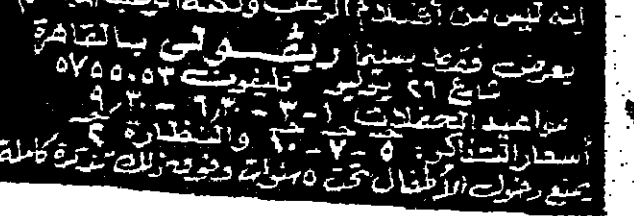 إنه ليس من أفلام الرعب ولكنه
يعرض فقط بسينما ريڤولى بالقاهرة
شارع ٢٦ يوليو تليفون ٥٧٥٥٠٥٣
مواعيد الحفلات ١ - ٣ - ٦٫٣٠ - ٩٫٣٠
أسعار التذاكر: ٥ - ٧ - ١٠ والنظارة ٢ جـ
يمنع دخول الأطفال تحت ٥ سنوات وفوق ذلك تذكرة كاملة